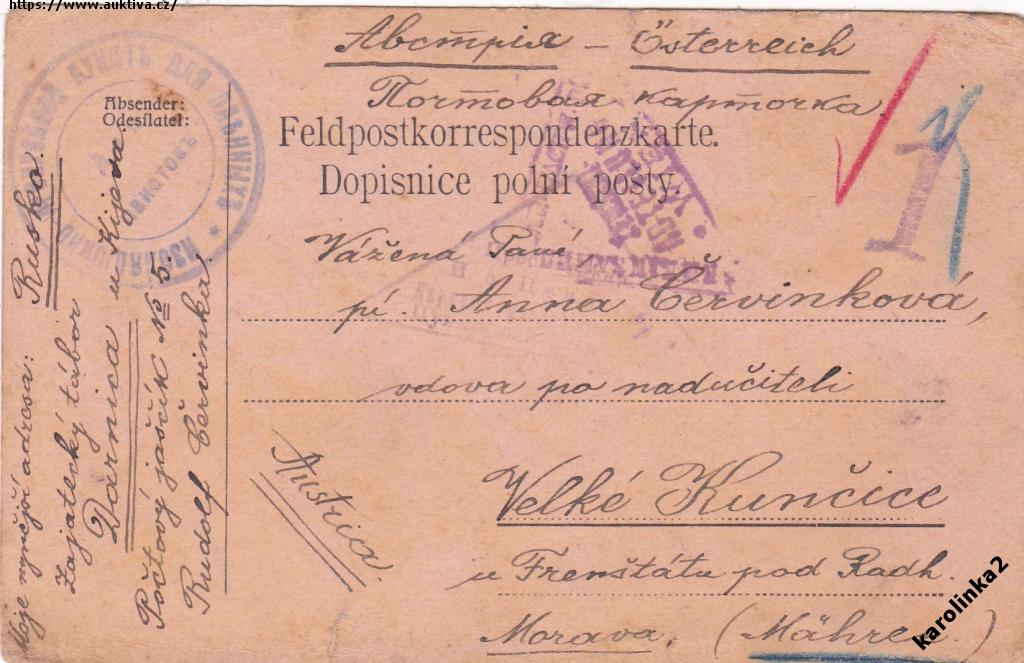 https://www.auktiva.cz/
Австрія - Österreich
Почтовая карточка.
Absender:
Odesílatel:
Feldpostkorrespondenzkarte.
Dopisnice polní pošty.
Vážená Paní,
pí. Anna Červinková,
vdova po nadučiteli
Velké Kunčice
u Frenštátu pod Radh.
Morava, (Mähren.)
Austria.
Moje nynější adresa:
Rusko.
Zajatecký tábor
Darnica u Kijeva.
Počtový jaščík No 5.
Rudolf Červinka,
ПУНКТЪ ДЛЯ
karolinka2